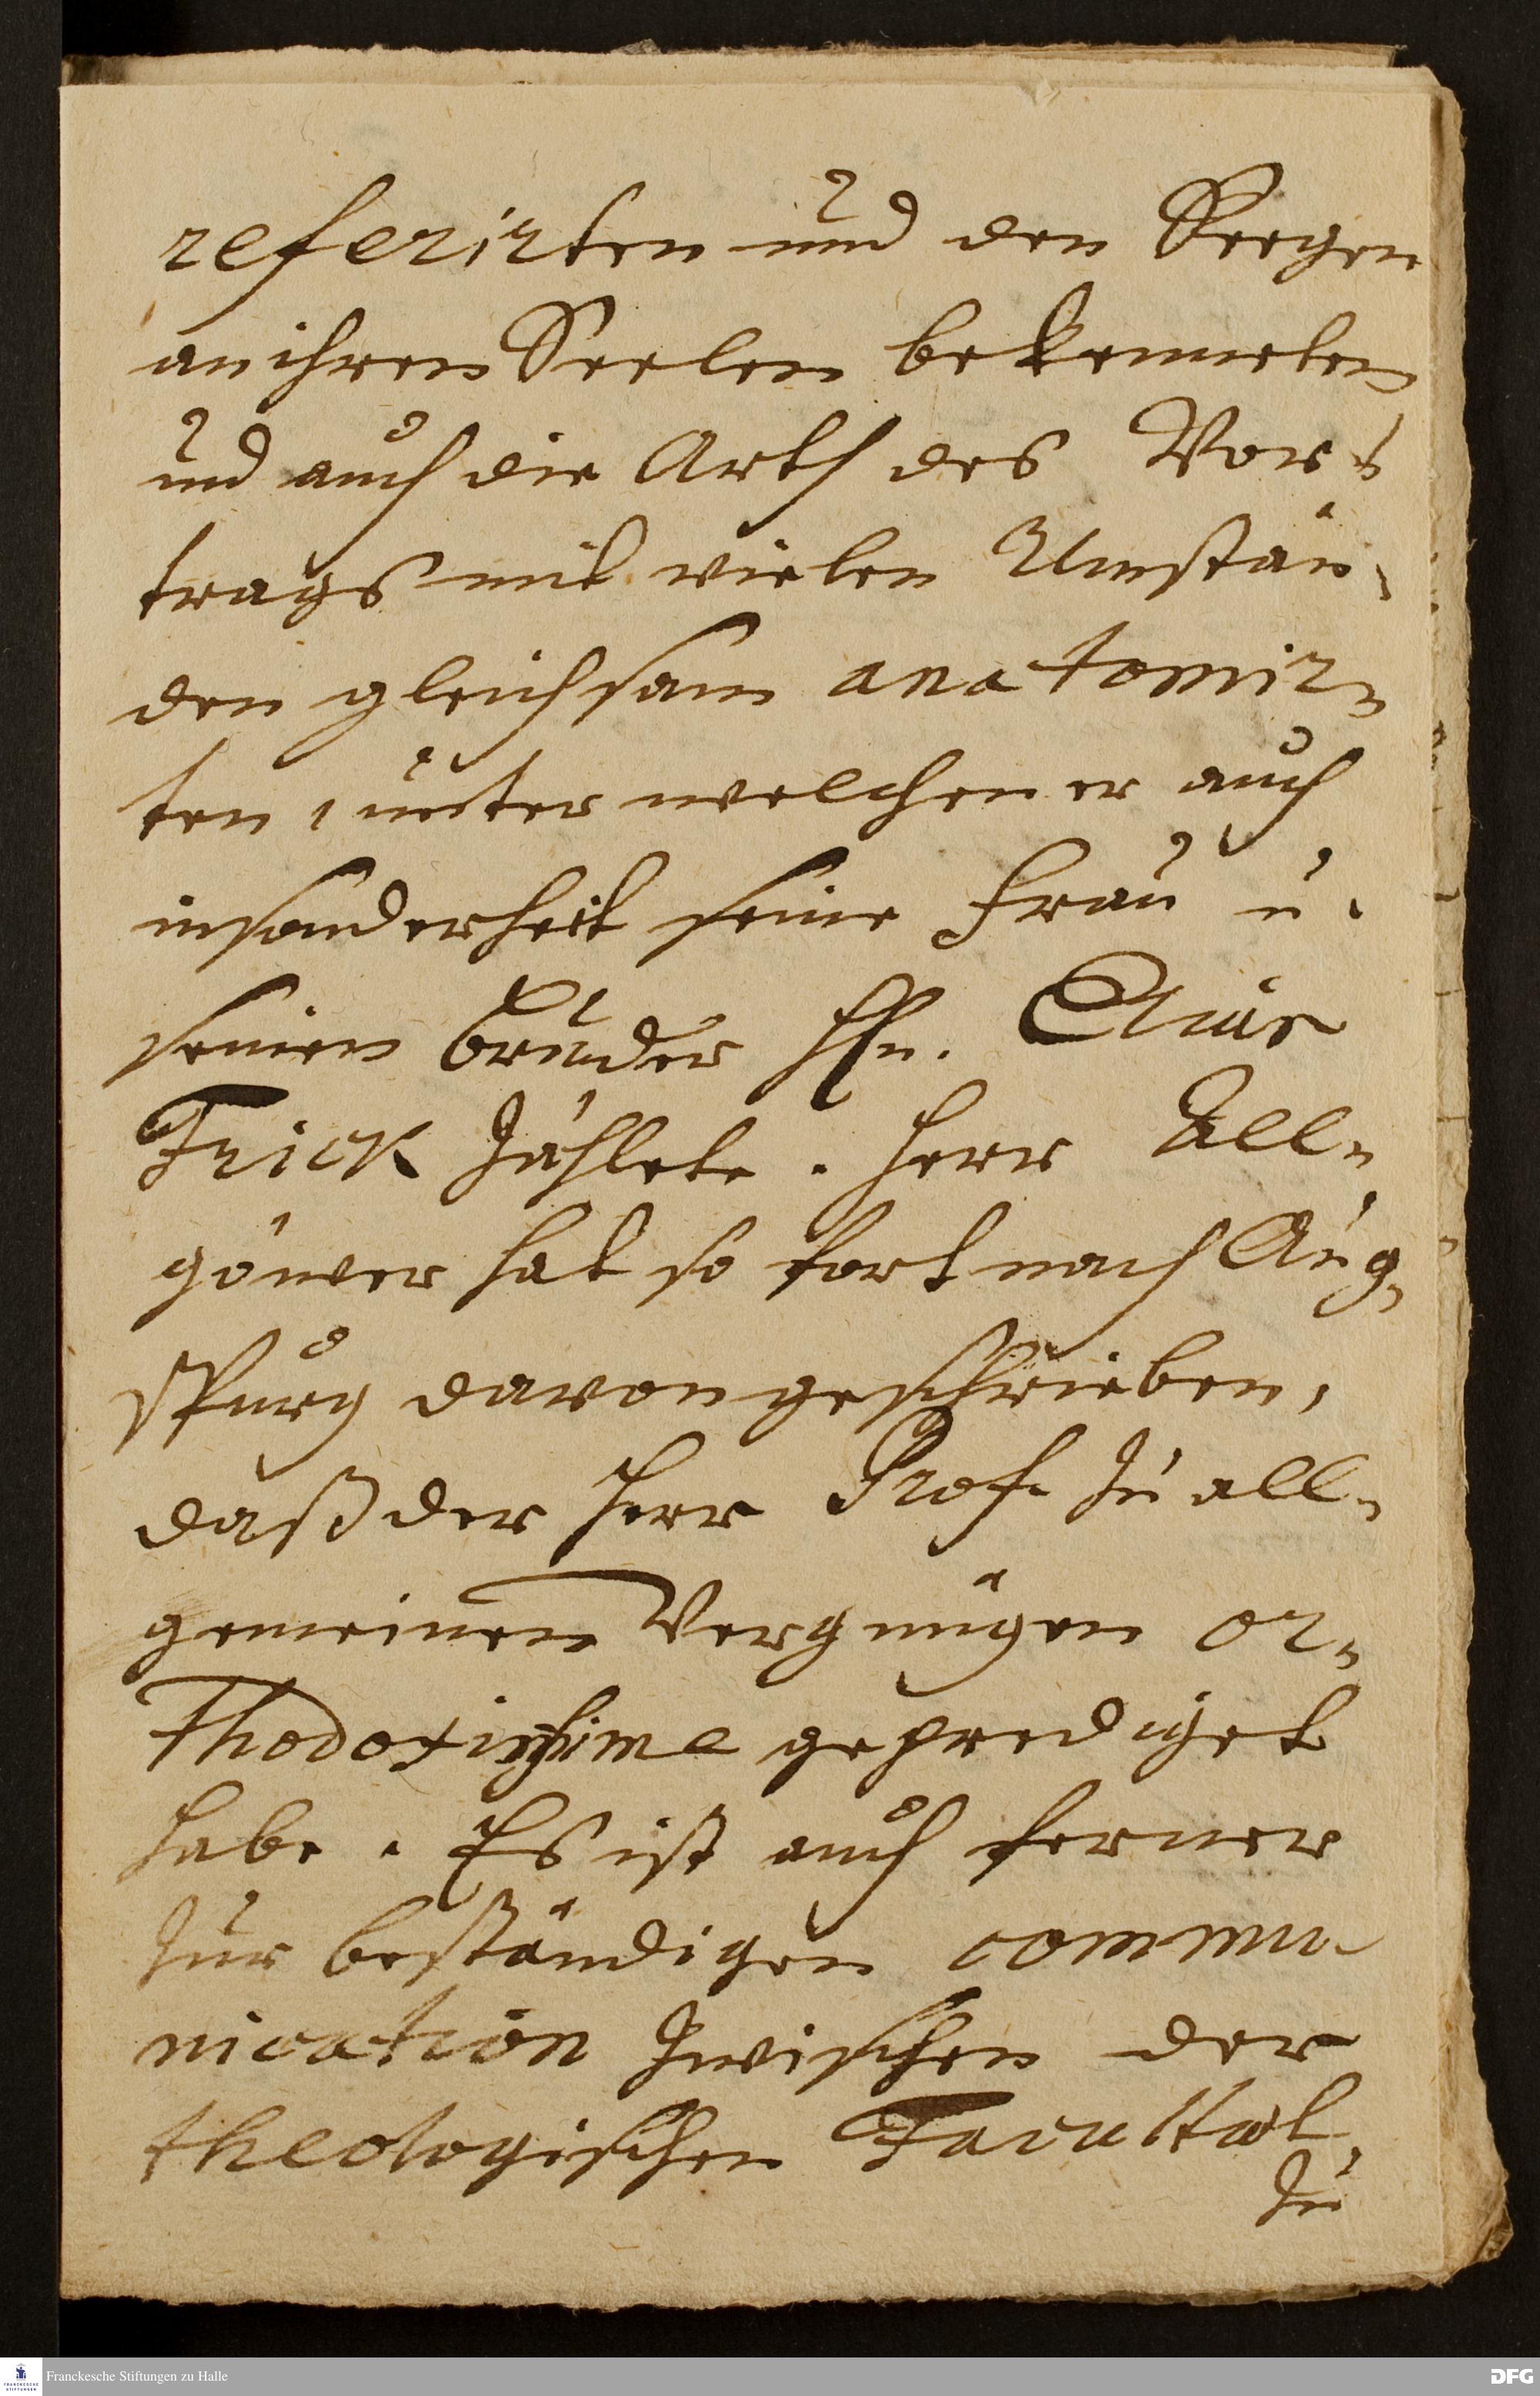 referirten und den Seegen
an ihren Seelen bekenneten
und auch die Arth des Vor-
trags mit vielen Umstän-
den gleichsam anatomir-
ten, unter welchen er auch
insonderheit seine Frau u.
seinen Bruder Hn.
Frick zählete. Herr All-
göwer hat so fort nach Aug-
spurg davon geschrieben,
daß der Herr Prof. zu all-
gemeinen Vergnügen or-
thodoxissime geprediget
habe. Es ist auch ferner
zur beständigen commu-
nication zwischen der
theologischen Facultät
zu
Franckesche Stiftungen zu Halle
FRANCKESCHE STIFTUNGEN
DFG